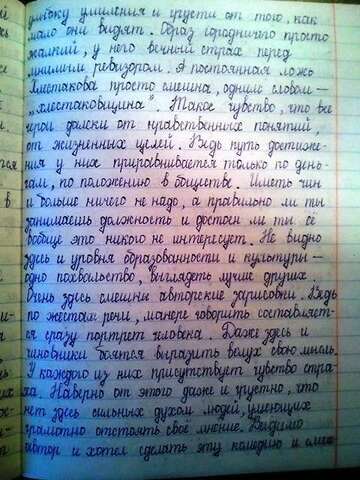 улыбку умиления и грусти от того, как
мало они видят. Образ городничего просто
жалкий, у него вечный страх перед
мнимым ревизором. А постоянная ложь
Хлестакова просто смешна, одним словом —
„хлестаковщина". Такое чувство, что все
герои далеки от нравственных понятий,
от жизненных целей. Ведь путь достиже-
ния у них приравнивается только по день-
гам, по положению в обществе. Иметь чин
и больше ничего не надо, а правильно ли ты
занимаешь должность и достоин ли ты её
вообще это никого не интересует. Не видно
здесь и уровня образованности и культуры —
одно похвальство, выглядеть лучше других.
Очень здесь смешны авторские зарисовки. Ведь
по жестам, речи, манере говорить составляет-
ся сразу портрет человека. Даже здесь и
чиновники боятся выразить вслух свою мысль.
У каждого из них присутствует чувство стра-
ха. Наверно от этого даже и грустно, что
нет здесь сильных духом людей, умеющих
грамотно отстоять своё мнение. Видимо
автор и хотел сделать эту комедию и смеш